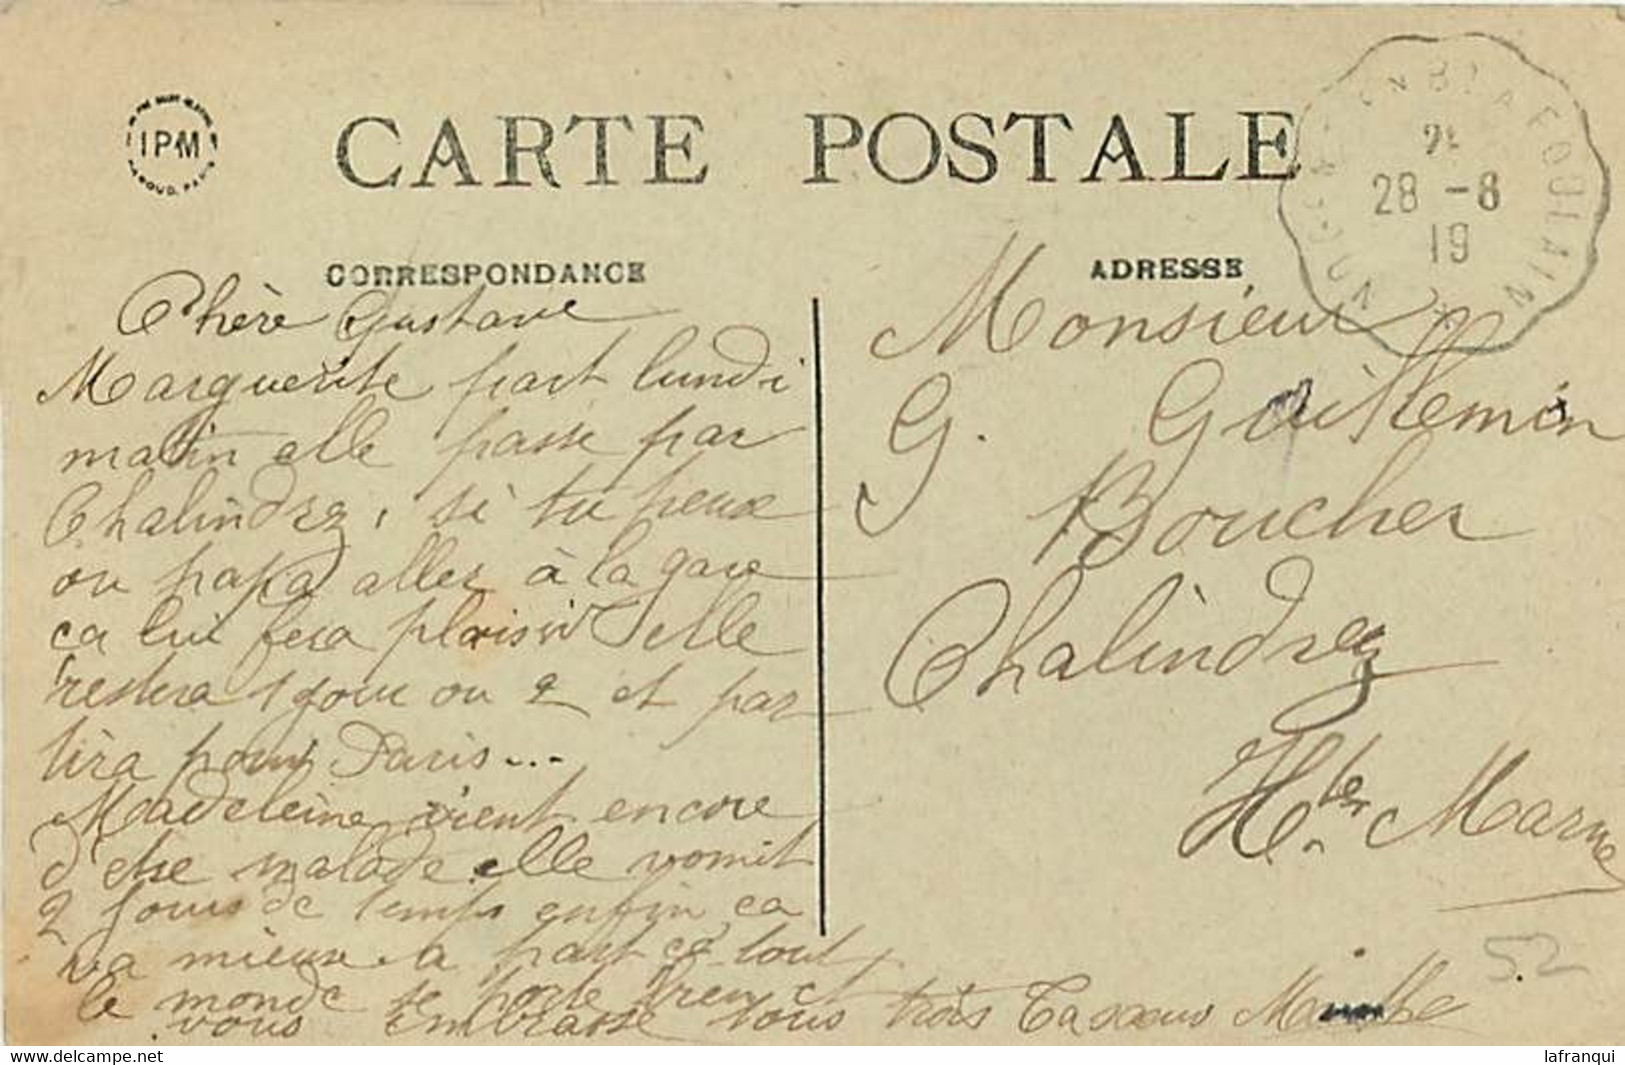 IPM
CARTE POSTALE
28 -8
19
CORRESPONDANCE
ADRESSE
Chère Gustave
Marguerite part lundi
matin elle passe par
Chalindrez, si tu peux
ou papa aller à la gare
ça lui fera plaisir elle
restera 1 jour ou 2 et par
tira pour Paris...
Madeleine vient encore
d'etre malade elle vomit
2 jours de temps enfin ça
va mieux a part ça tout
le monde se porte bien et
vous embrasse tous trois
Monsieur
G. Guillemin
Boucher
Chalindrez
Hte Marne
52
lafranqui